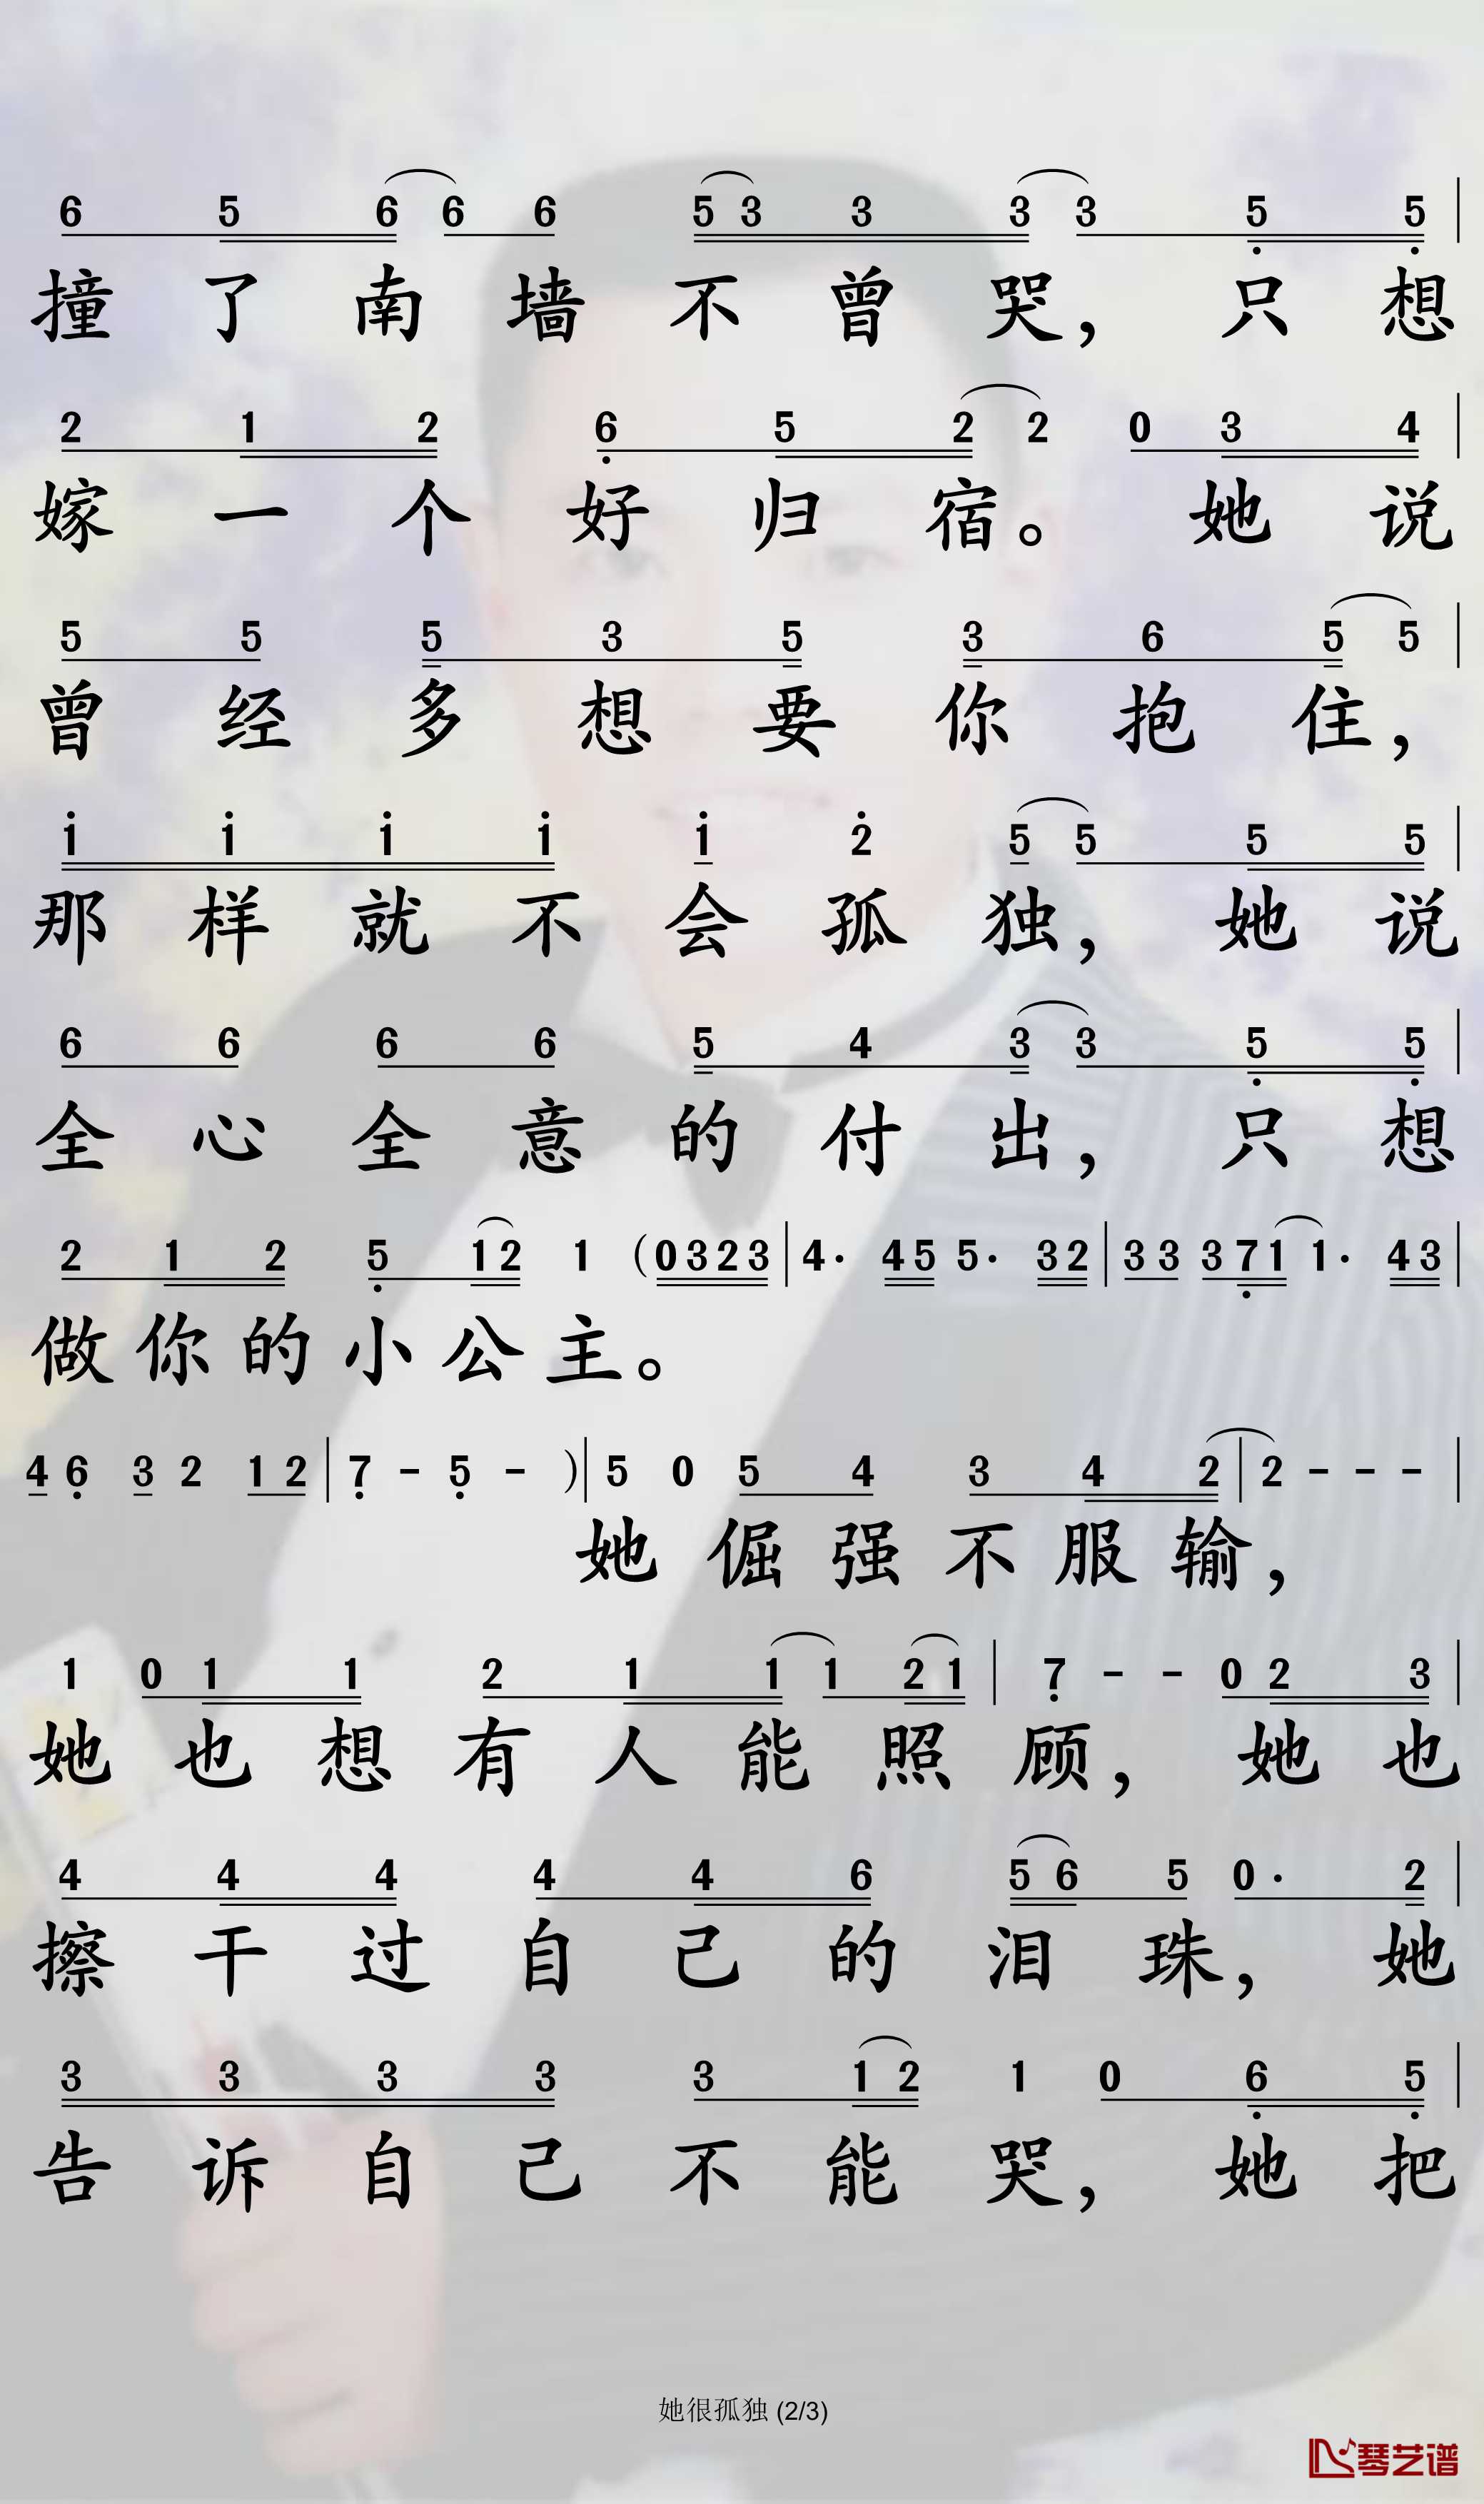 6 5 6 6 6 5 3 3 3 3 5 5 |
撞了南墙不曾哭，只想
2 1 2 6 5 2 2 0 3 4 |
嫁一个好归宿。她说
5 5 5 3 5 3 6 5 5 |
曾经多想要你抱住，
1 1 1 1 1 2 5 5 5 5 |
那样就不会孤独，她说
6 6 6 6 5 4 3 3 5 5 |
全心全意的付出，只想
2 1 2 5 1 2 1 (0 3 2 3 | 4· 4 5 5· 3 2 | 3 3 3 7 1 1· 4 3 |
做你的小公主。
4 6 3 2 1 2 | 7 - 5 - ) | 5 0 5 4 3 4 2 | 2 - - - |
她倔强不服输，
1 0 1 1 2 1 1 1 2 1 | 7 - - 0 2 3 |
她也想有人能照顾，她也
4 4 4 4 4 6 5 6 5 0· 2 |
擦干过自己的泪珠，她
3 3 3 3 3 1 2 1 0 6 5 |
告诉自己不能哭，她把
她很孤独 (2/3)
琴艺谱